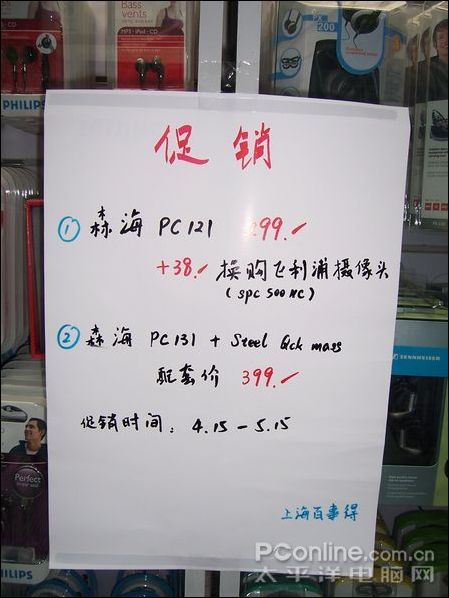 Bass
vents
MP3 - iPod - CD
PHILIPS
PX
200
促销
① 森海 PC121 299.-
+38.- 换购飞利浦摄像头
(SPC 500 NC)
② 森海 PC131 + Steel Qck mass
配套价 399.-
促销时间：4.15 - 5.15
上海百事得
SENNHEISER
Perfect
PHILIPS
PConline.com.cn
太平洋电脑网